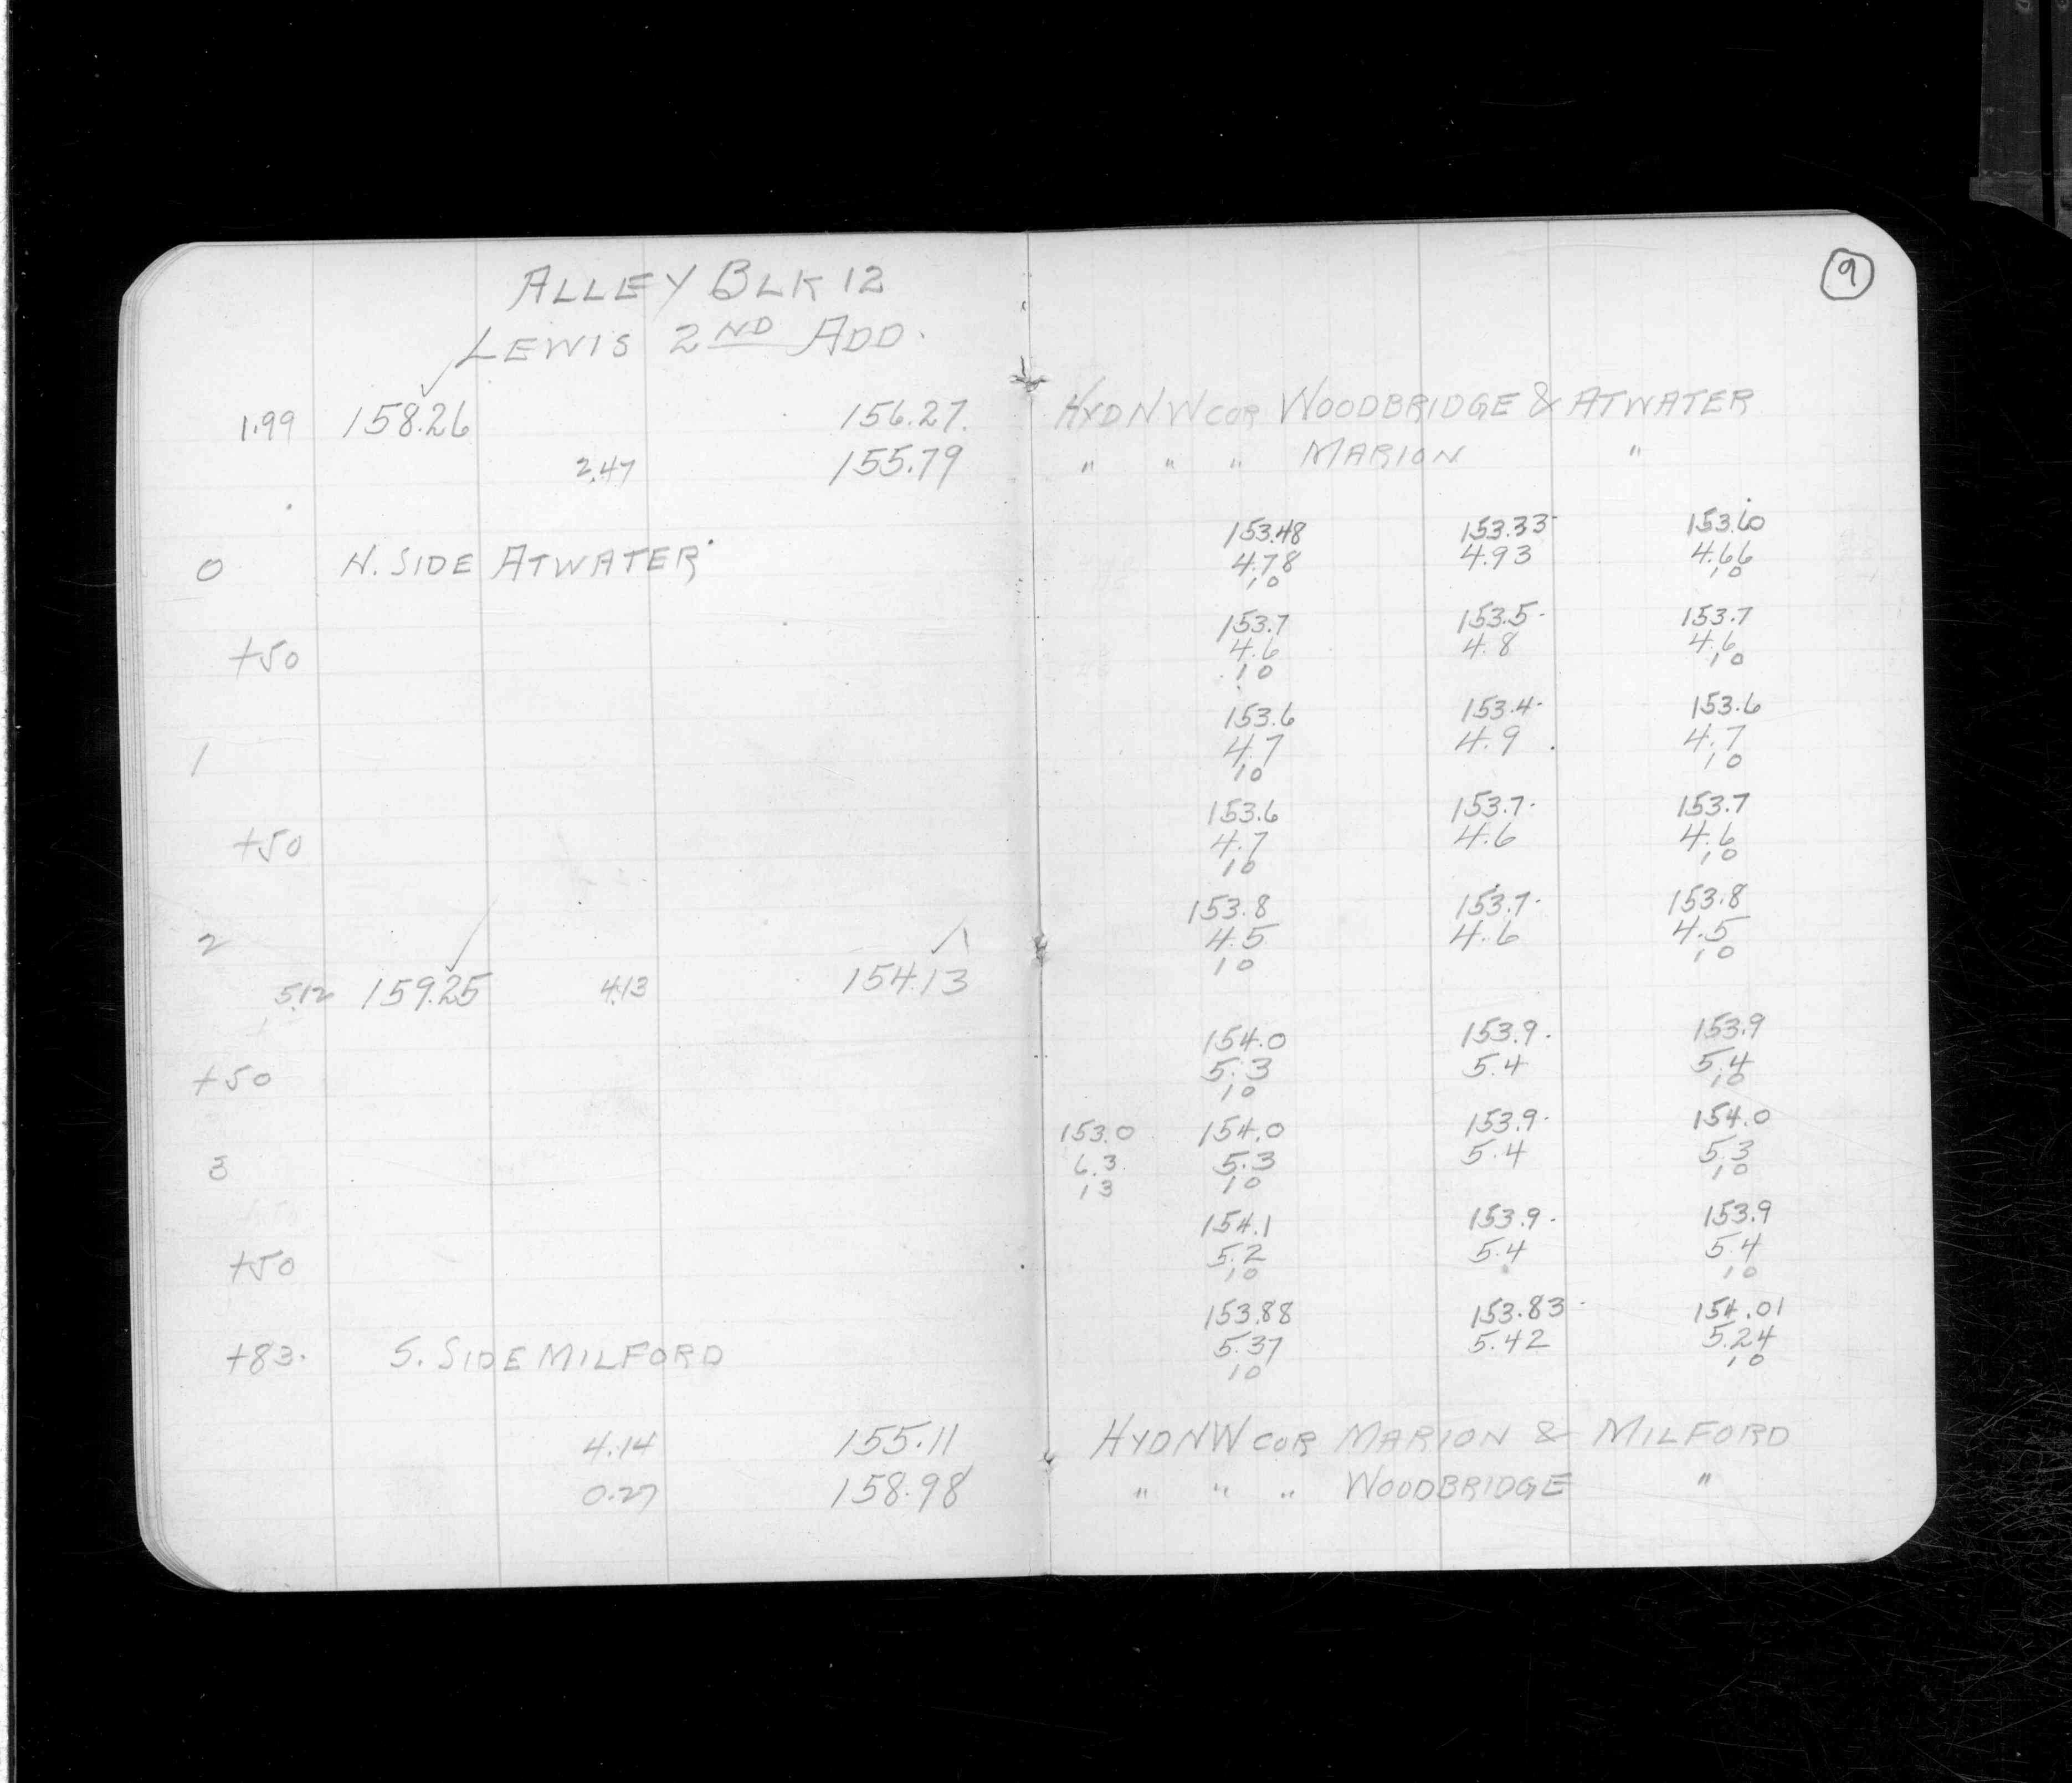 9
ALLEY BLK 12
LEWIS 2ND ADD.
1.99 158.26 156.27. HYD NW COR WOODBRIDGE & ATWATER
2.47 155.79 " " " MARION "
153.48 153.33 153.60
0 N. SIDE ATWATER 4.78 4.93 4.66
10 10
153.7 153.5 153.7
+50 4.6 4.8 4.6
10 10
153.6 153.4 153.6
1 4.7 4.9 4.7
10 10
153.6 153.7 153.7
+50 4.7 4.6 4.6
10 10
153.8 153.7 153.8
2 4.5 4.6 4.5
10 10
5.12 159.25 4.13 154.13
154.0 153.9 153.9
+50 5.3 5.4 5.4
10 10
153.0 154.0 153.9 154.0
3 6.3 5.3 5.4 5.3
13 10 10
154.1 153.9 153.9
+50 5.2 5.4 5.4
10 10
153.88 153.83 154.01
+83. S. SIDE MILFORD 5.37 5.42 5.24
10 10
4.14 155.11 HYD NW COR MARION & MILFORD
0.27 158.98 " " " WOODBRIDGE "